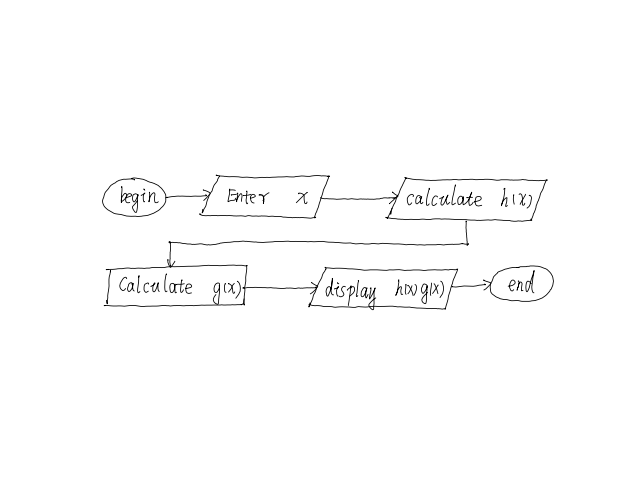 begin
Enter x
calculate h(x)
Calculate g(x)
display h(x) g(x)
end